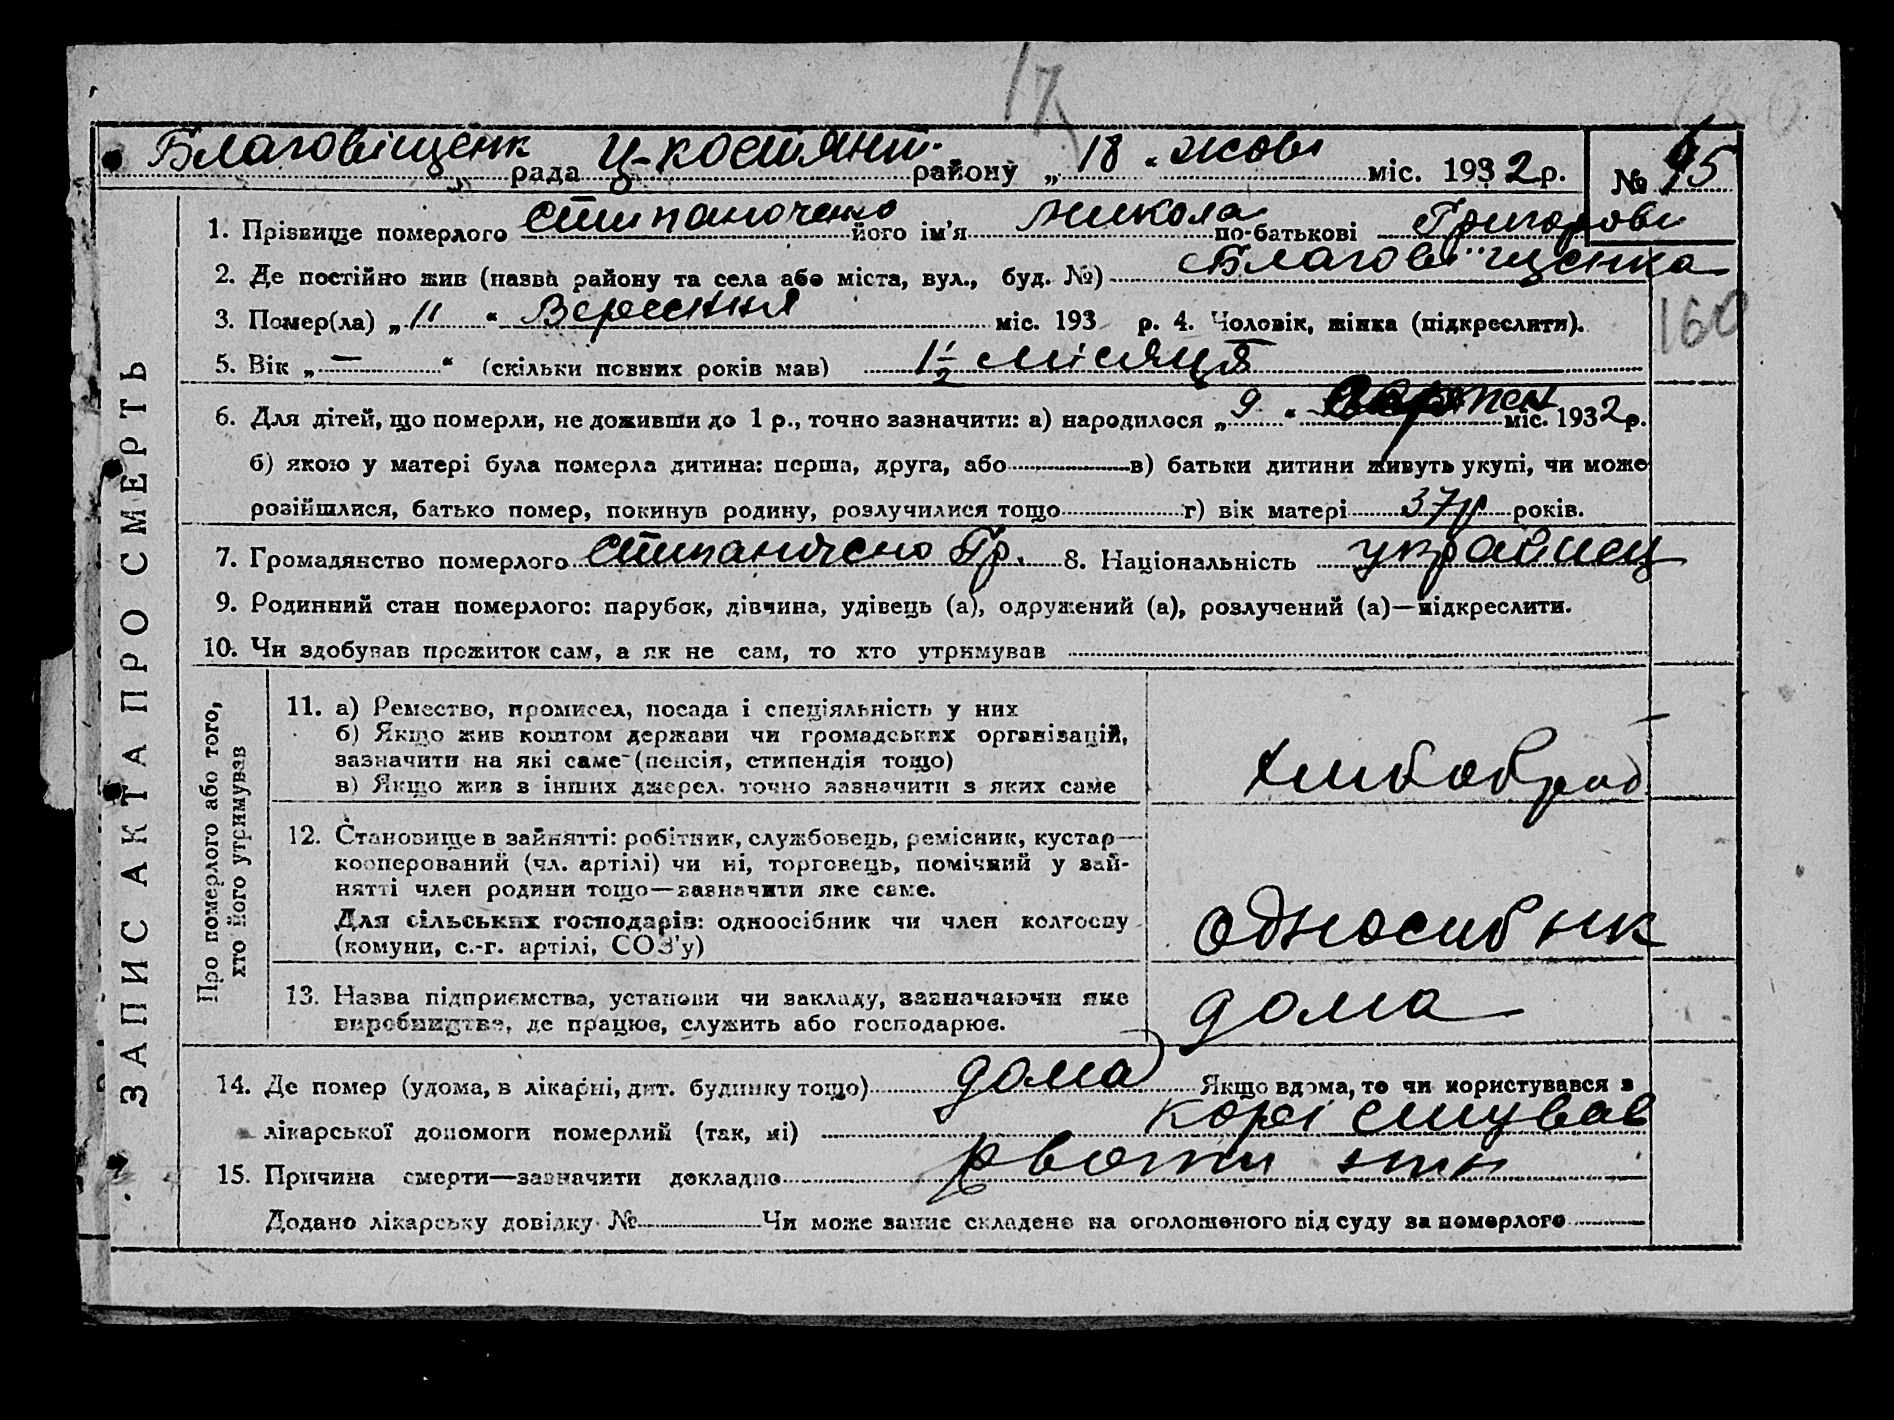 17
Благовіщенк рада Ц-костянт. району „ 18 “ жовт міс. 1932 р. № 95
1. Прізвище померлого його ім'я Микола по-батькові Григорови
2. Де постійно жив (назва району та села або міста, вул., буд. №) Благовіщенка
3. Помер(ла) „ 11 “ Вересння міс. 193 р. 4. Чоловік, жінка (підкреслити).
160
5. Вік „ — “ (скільки повних років мав) 1 1/2 місяця
6. Для дітей, що померли, не доживши до 1 р., точно зазначити: а) народилося „ 9 “ міс. 1932 р.
б) якою у матері була померла дитина: перша, друга, або в) батьки дитини живуть укупі, чи може
розійшлися, батько помер, покинув родину, розлучилися тощо г) вік матері 37 р років.
7. Громадянство померлого Гр. 8. Національність українец
9. Родинний стан померлого: парубок, дівчина, удівець (а), одружений (а), розлучений (а)—підкреслити.
10. Чи здобував прожиток сам, а як не сам, то хто утримував
ЗАПИС АКТА ПРО СМЕРТЬ
Про померлого або того,
хто його утримував
11. а) Ремество, промисел, посада і спеціяльність у них
б) Якщо жив коштом держави чи громадських організацій,
зазначити на які саме (пенсія, стипендія тощо)
в) Якщо жив з інших джерел, точно зазначити з яких саме
хлибороб
12. Становище в зайнятті: робітник, службовець, ремісник, кустар—
кооперований (чл. артілі) чи ні, торговець, помічний у зай-
нятті член родини тощо—зазначити яке саме.
Для сільських господарів: одноосібник чи член колгоспу
(комуни, с.-г. артілі, СОЗ'у)
односибник
13. Назва підприємства, установи чи закладу, зазначаючи яке
виробництва, де працює, служить або господарює.
дома
14. Де помер (удома, в лікарні, дит. будинку тощо) дома Якщо вдома, то чи користувався з
лікарської допомоги померлий (так, ні) корістував
15. Причина смерти—зазначити докладно рвотни
Додано лікарську довідку № Чи може запис складено на оголошеного від суду за померлого